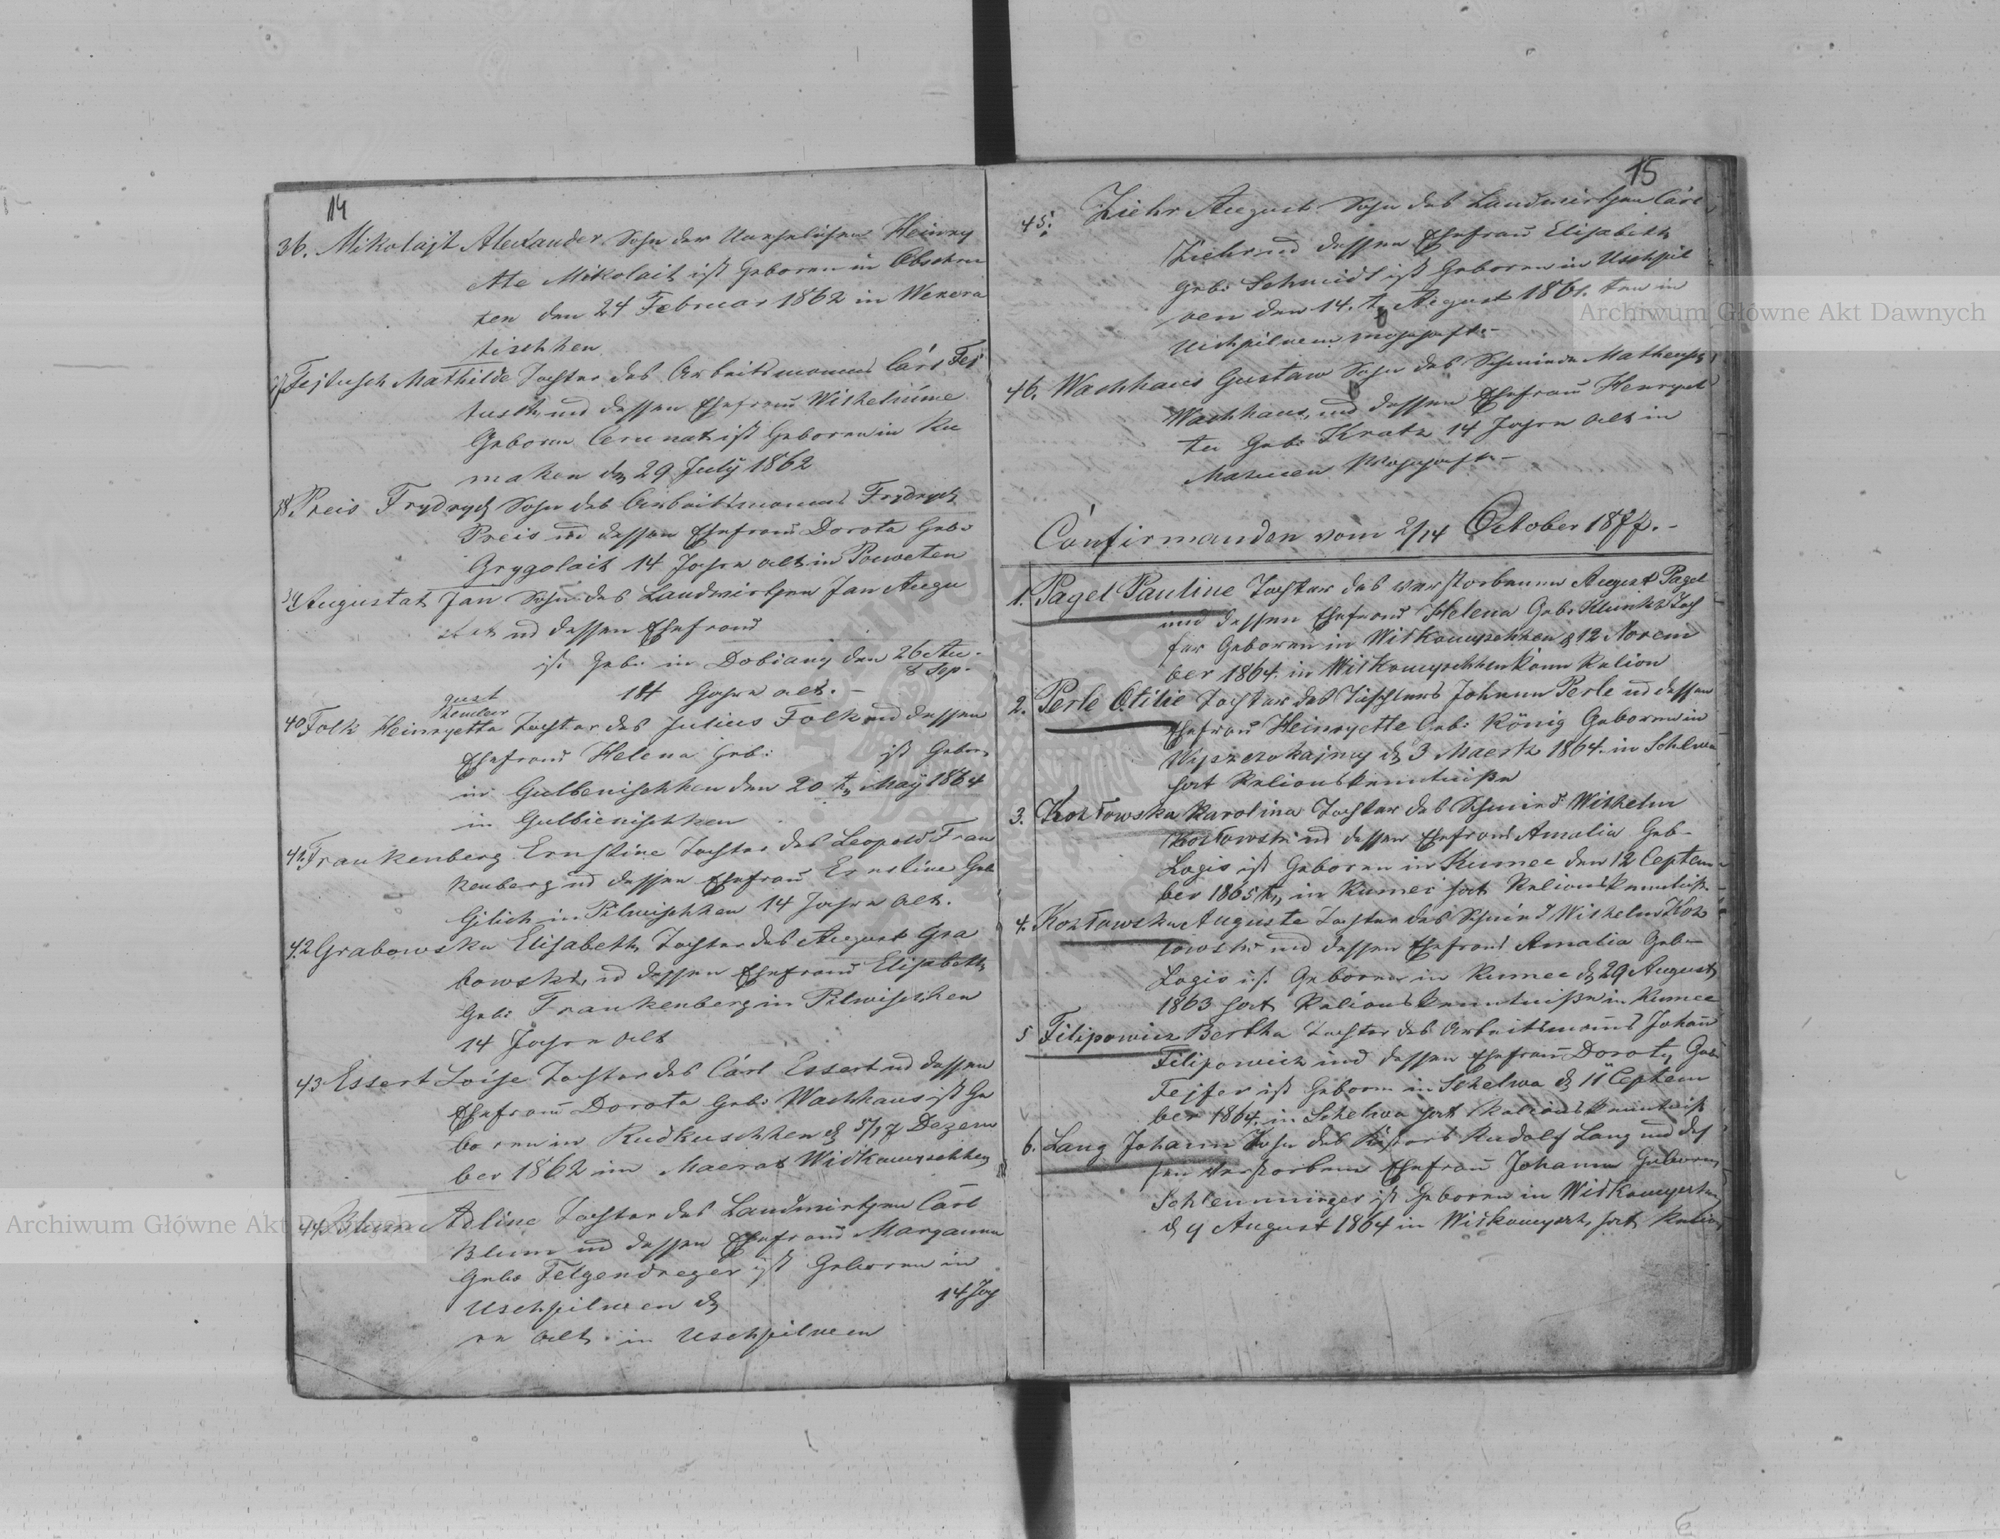 14
36. Mikolajt Alexander Sohn der Unehelichen Heinry
ette Mikolait ist Geboren in Obschru
ten den 24 Februar 1862 in Wersra
tischken
Fejtusch Mathilde Tochter des Arbeitsmannes Carl Fej
tusch und dessen Ehefrau Wilhelmine
Geboren Cerunat ist Geboren in Ku
maken d 29 July 1862
38. Preis Frydrych Sohn des Arbeitsmannes Frydrych
Preis und dessen Ehefrau Dorota Geb:
Grygolait 14 Jahre alt in Pouweten
39 Augustat Jan Sohn des Landwirthen Jan Augu
stat und dessen Ehefrau
ist Geb: in Dobiany den 26 Au-
8 Sep-
gust
tember 14 Jahre alt. -
40 Folk Heinryetta Tochter des Julius Folk und dessen
Ehefrau Helena Geb: ist Geboren
in Gulbenischken den 20 t May 1864
in Gulbienischken
41. Frankenberg Ernstine Tochter des Leopold Fran
kenberg und dessen Ehefrau Ernstine Geb
Gilich in Pilwischken 14 Jahre alt.
42 Grabowska Elisabeth Tochter des August Gra
bowski, und dessen Ehefrau Elisabeth
Geb: Frankenberg in Pilwischken
14 Jahre alt
43 Essert Loise Tochter des Carl Essert und dessen
Ehefrau Dorota Geb: Wachhaus ist Ge
boren in Rudkuschken d 5/17 Dezem
ber 1862 im Maerat Wilkowischken
44 Blum Adline Tochter des Landwirthen Carl
Blum und dessen Ehefrau Margarun
Geb: Felgendreger ist Geboren in
Uschpilucen d 14 Jah
re alt in Uschpilucen
15
45. Ziehr August Sohn des Landwirthen Carl
Ziehr und dessen Ehefrau Elisabeth
Geb: Schmidt ist Geboren in Uschpil
ucen den 14. t August 1861. ten in
Uschpilucen wohnhaft. -
46. Wachhaus Gustaw Sohn des Schmiede Matheusch
Wachhaus, und dessen Ehefrau Henryet
te Geb: Kratz 14 Jahre alt in
wohnhaft -
Confirmanden vom 2/14 October 1877. -
1. Pagel Pauline Tochter des verstorbenen August Pagel
und dessen Ehefrau Helena Geb: Toch
ter Geboren in Wilkowischken d 12 Novem
ber 1864. in Wilkowischken kann Relion
2. Perle Otilie Tochter des Tischlers Johann Perle und dessen
Ehefrau Heinryette Geb: König Geboren in
d 3 Maertz 1864. in Schlwa
hat Relionskenntniße
3. Kozłowska Karolina Tochter des Schmied Wilhelm
Kozłowski und dessen Ehefrau Amalia Geb-
Logis ist Geboren in Kumee den 12 Ceptem
ber 1865 t, in Kumei hat Relionskenntniß.
4. Kozłowska Auguste Tochter des Schmied Wilhelm Koz
łowski und dessen Ehefrau Amalia Geb-
Logis ist Geboren in Kumee d 29 August
1863 hat Relionskenntniße in Kumee
5 Filipowicz Bertha Tochter des Arbeitsmanns Johan
Filipowicz und dessen Ehefrau Doroty Geb:
Fejfer ist Geboren in Schelwa d 11 Ceptem
ber 1864. in Schelwa hat Relionskenntniß
6. Lang Johann Sohn des Rudolf Lang und des
sen verstorbene Ehefrau Johanna Geboren
Schlemminger ist Geboren in Wilkowischken
d 9 August 1864 in Wilkowysch, hat Relion
Archiwum Główne Akt Dawnych
Archiwum Główne Akt Dawnych